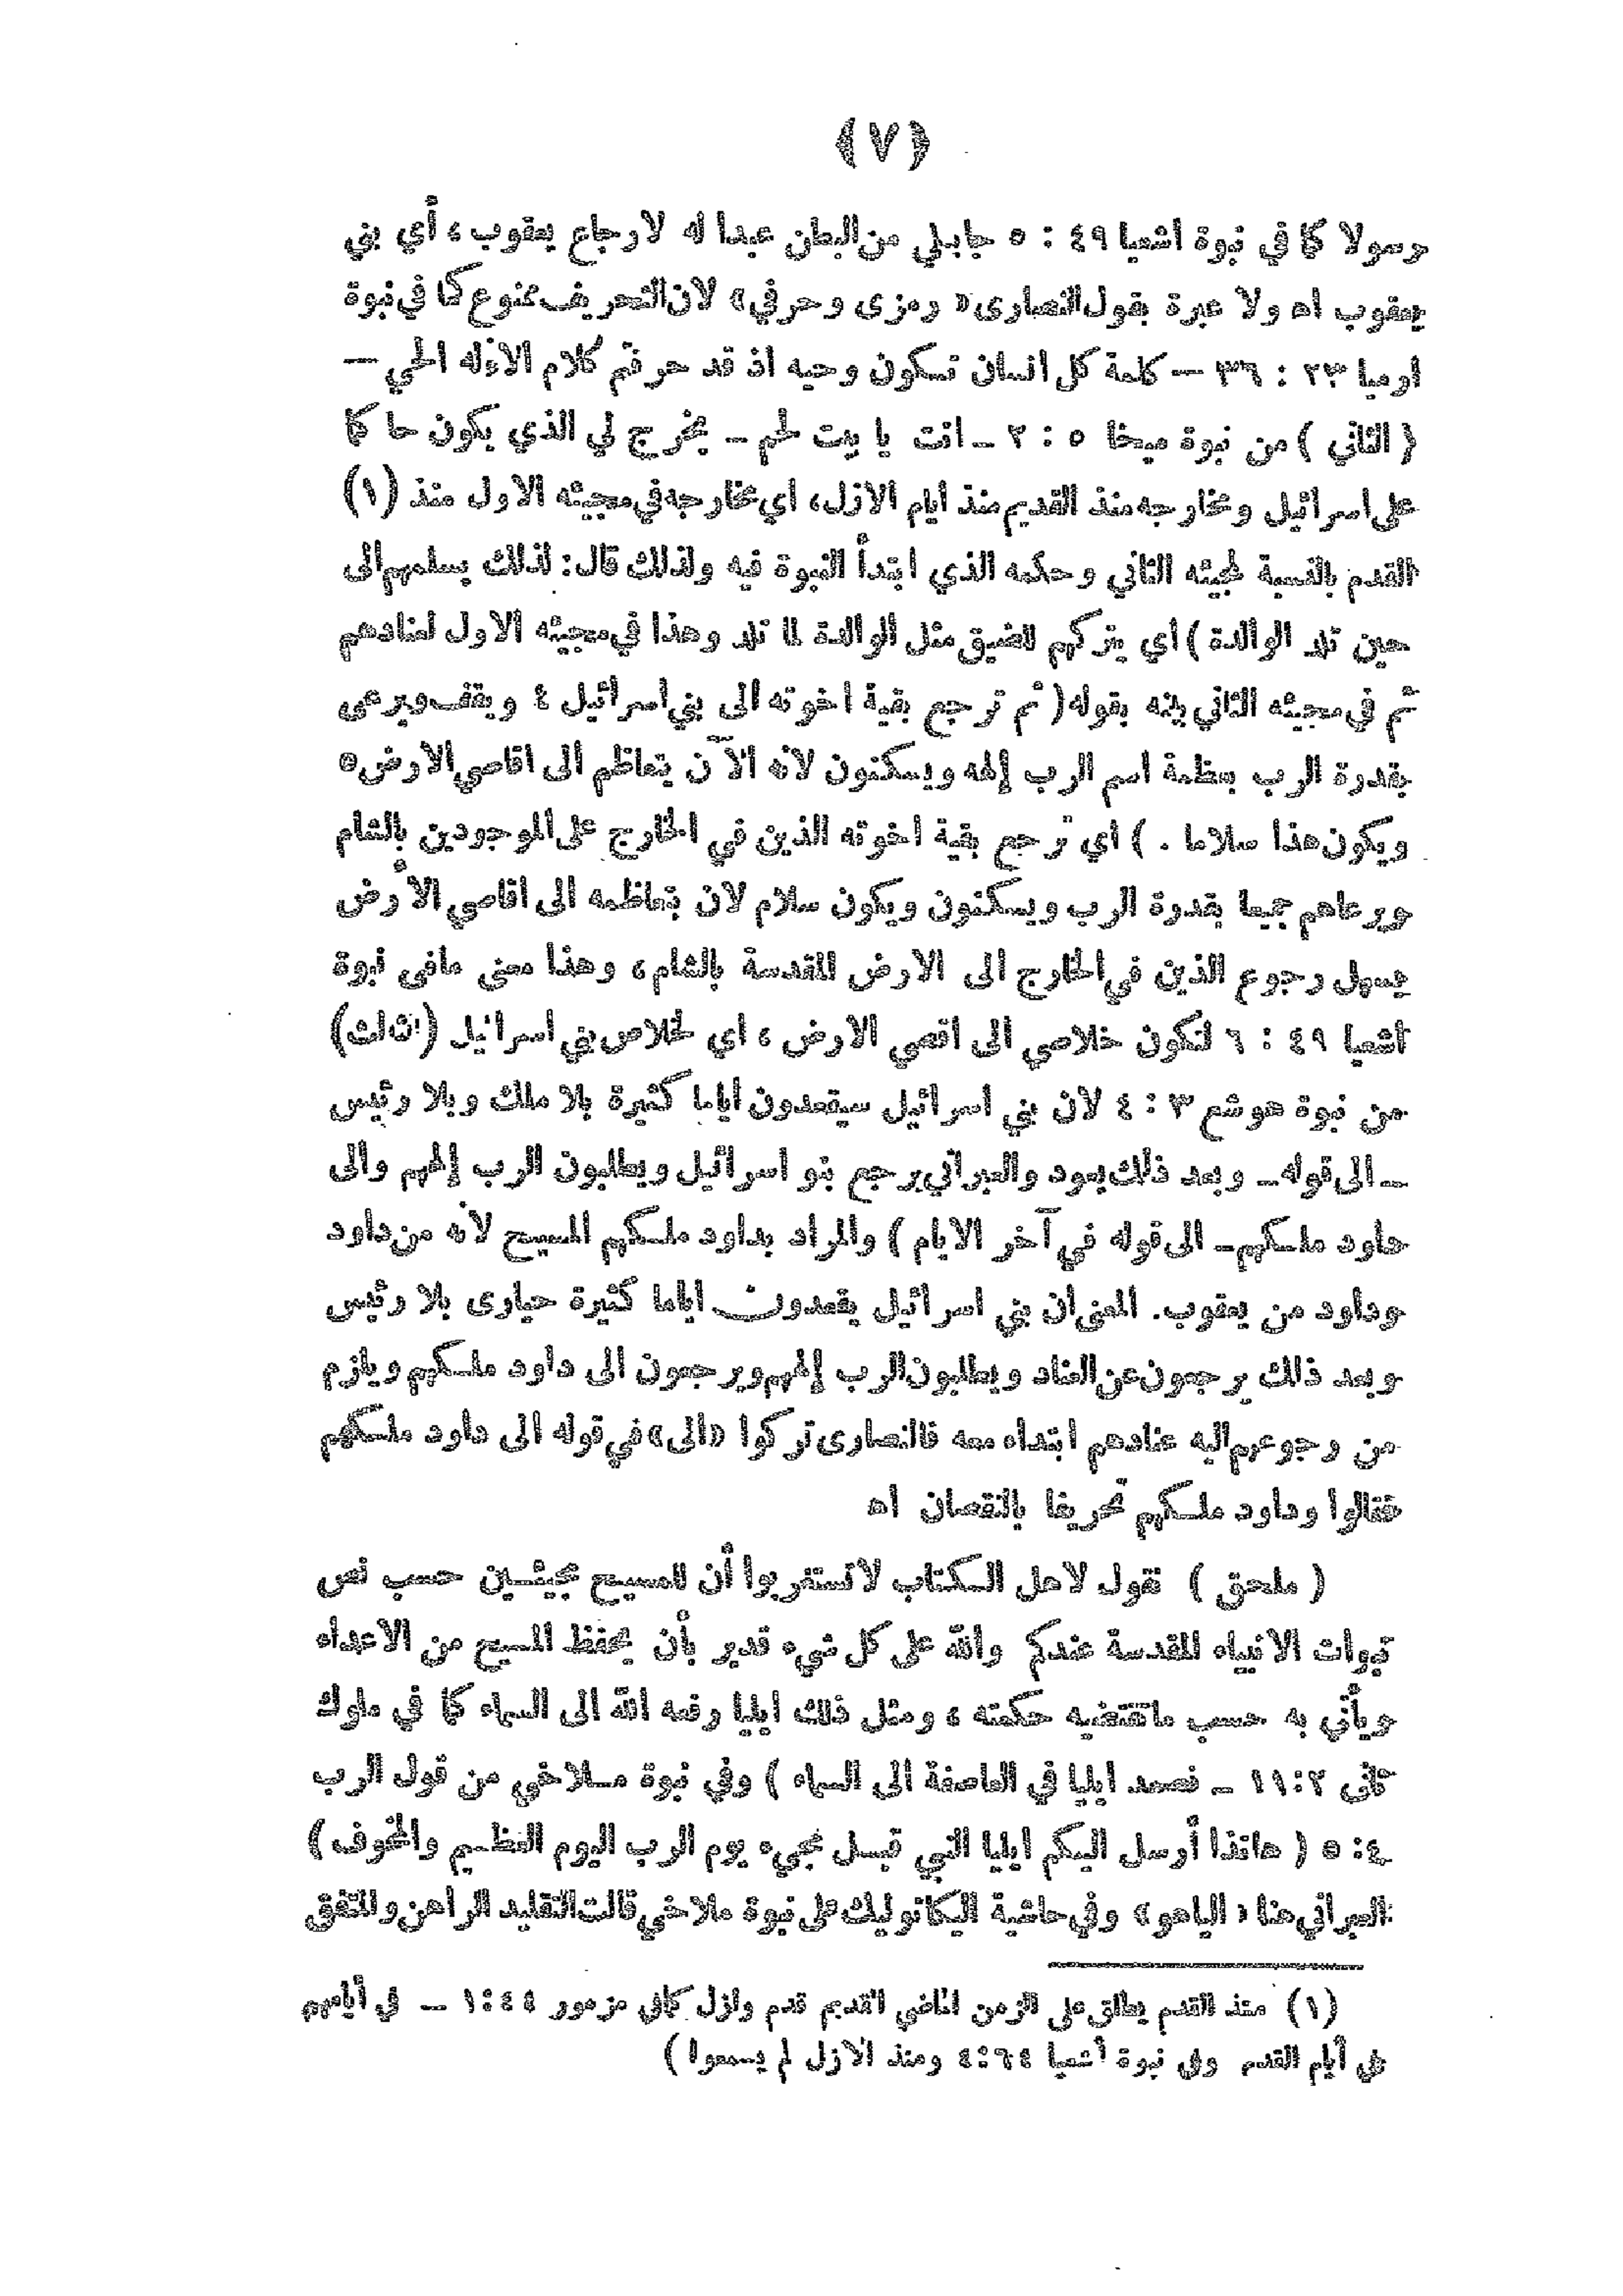 ﴿ ٧ ﴾
رسولا كما في نبوة اشعيا ٤٩ : ٥ جابلي من البطن عبدا له لارجاع يعقوب ، أي بني
يعقوب اه ولا عبرة بقول النصارى « رمزى وحرفي » لان التحريف ممنوع كما في نبوة
ارميا ٢٣ : ٣٦ — كلمة كل انسان تكون وحيه اذ قد حرفتم كلام الاله الحي —
( الثاني ) من نبوة ميخا ٥ : ٢ – انت يا بيت لحم – يخرج لي الذي يكون حاكما
على اسرائيل ومخارجه منذ القديم منذ أيام الازل، اي مخارجه في مجيئه الاول منذ (١)
القدم بالنسبة لمجيئه الثاني وحكمه الذي ابتدأ النبوة فيه ولذلك قال: لذلك يسلمهم الى
حين تلد الوالدة ) أي يتركهم للضيق مثل الوالدة لما تلد وهذا في مجيئه الاول لعنادهم
ثم في مجيئه الثاني بينه بقوله ( ثم ترجع بقية اخوته الى بني اسرائيل ٤ ويقف ويرعى
بقدرة الرب بعظمة اسم الرب إلهه ويسكنون لانه الآن يتعاظم الى اقاصي الارض ٥
ويكون هذا سلاما . ) اي ترجع بقية اخوته الذين في الخارج على الموجودين بالشام
ويرعاهم جميعا بقدرة الرب ويسكنون ويكون سلام لان بتعاظمه الى اقاصي الأرض
يسهل رجوع الذين في الخارج الى الارض المقدسة بالشام ، وهذا معنى مافى نبوة
اشعيا ٤٩ : ٦ لتكون خلاصي الى اقصي الارض ، اي لخلاص بني اسرائيل (الثالث)
من نبوة هوشع ٣ : ٤ لان بني اسرائيل سيقعدون أياما كثيرة بلا ملك وبلا رئيس
– الى قوله – وبعد ذلك يعود والعبراني يرجع بنو اسرائيل ويطلبون الرب إلههم والى
داود ملكهم – الى قوله في آخر الايام ) والمراد بداود ملكهم المسيح لأنه من داود
وداود من يعقوب. المعنى ان بني اسرائيل يقعدون اياما كثيرة حيارى بلا رئيس
وبعد ذلك يرجعون عن العناد ويطلبون الرب إلههم ويرجعون الى داود ملكهم ويلزم
من رجوعهم اليه عنادهم ابتداء معه فالنصارى تركوا «الى» في قوله الى داود ملكهم
فقالوا وداود ملكهم تحريفا بالنقصان اه
( ملحق ) نقول لاهل الكتاب لاتستغربوا أن للمسيح مجيئين حسب نص
نبوات الانبياء المقدسة عندكم والله على كل شيء قدير بأن يحفظ المسيح من الاعداء
ويأتي به حسب ماتقتضيه حكمته ، ومثل ذلك ايليا رفعه الله الى السماء كما في ملوك
ثانى ٢:١١ – فصعد ايليا في العاصفة الى السماء ) وفي نبوة ملاخي من قول الرب
٤: ٥ ( هانذا أرسل اليكم ايليا النبي قبل مجيء يوم الرب اليوم العظيم والمخوف )
العبراني هنا « الياهو » وفي حاشية الكاتوليك على نبوة ملاخي قالت التقليد الراهن والمتفق
(١) منذ القدم يطلق على الزمن الماضي القديم قدم وازل كافى مزمور ١:٤٤ – فى أيامهم
فى أيام القدم وفى نبوة أشعيا ٤:٦٤ ومنذ الازل لم يسمعوا )